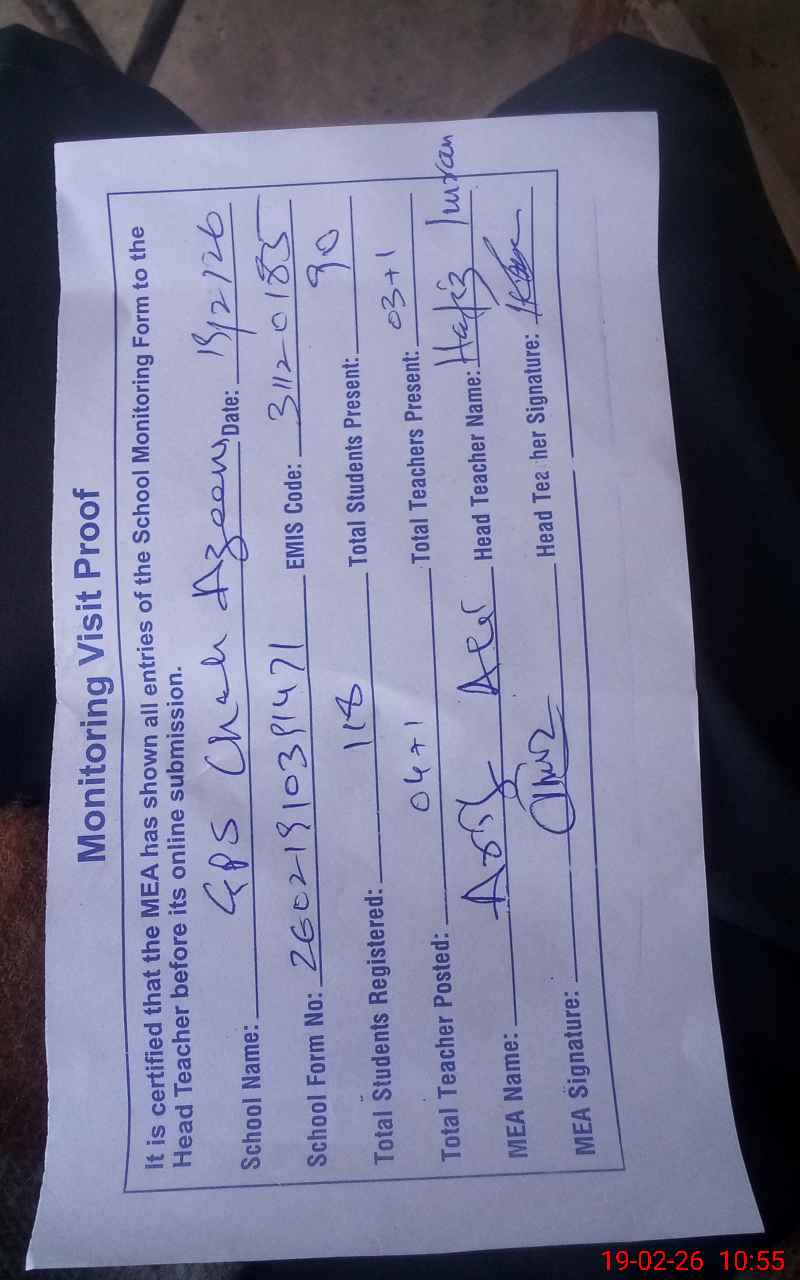 Monitoring Visit Proof
It is certified that the MEA has shown all entries of the School Monitoring Form to the
Head Teacher before its online submission.
School Name: GPS Chah Azeem Date: 19/2/26
School Form No: 26021910391471 EMIS Code: 31120185
Total Students Registered: 118 Total Students Present: 90
Total Teacher Posted: 04+1 Total Teachers Present: 03+1
MEA Name: Asif Ali Head Teacher Name: Hafiz Imran
MEA Signature: Head Teacher Signature:
19-02-26 10:55